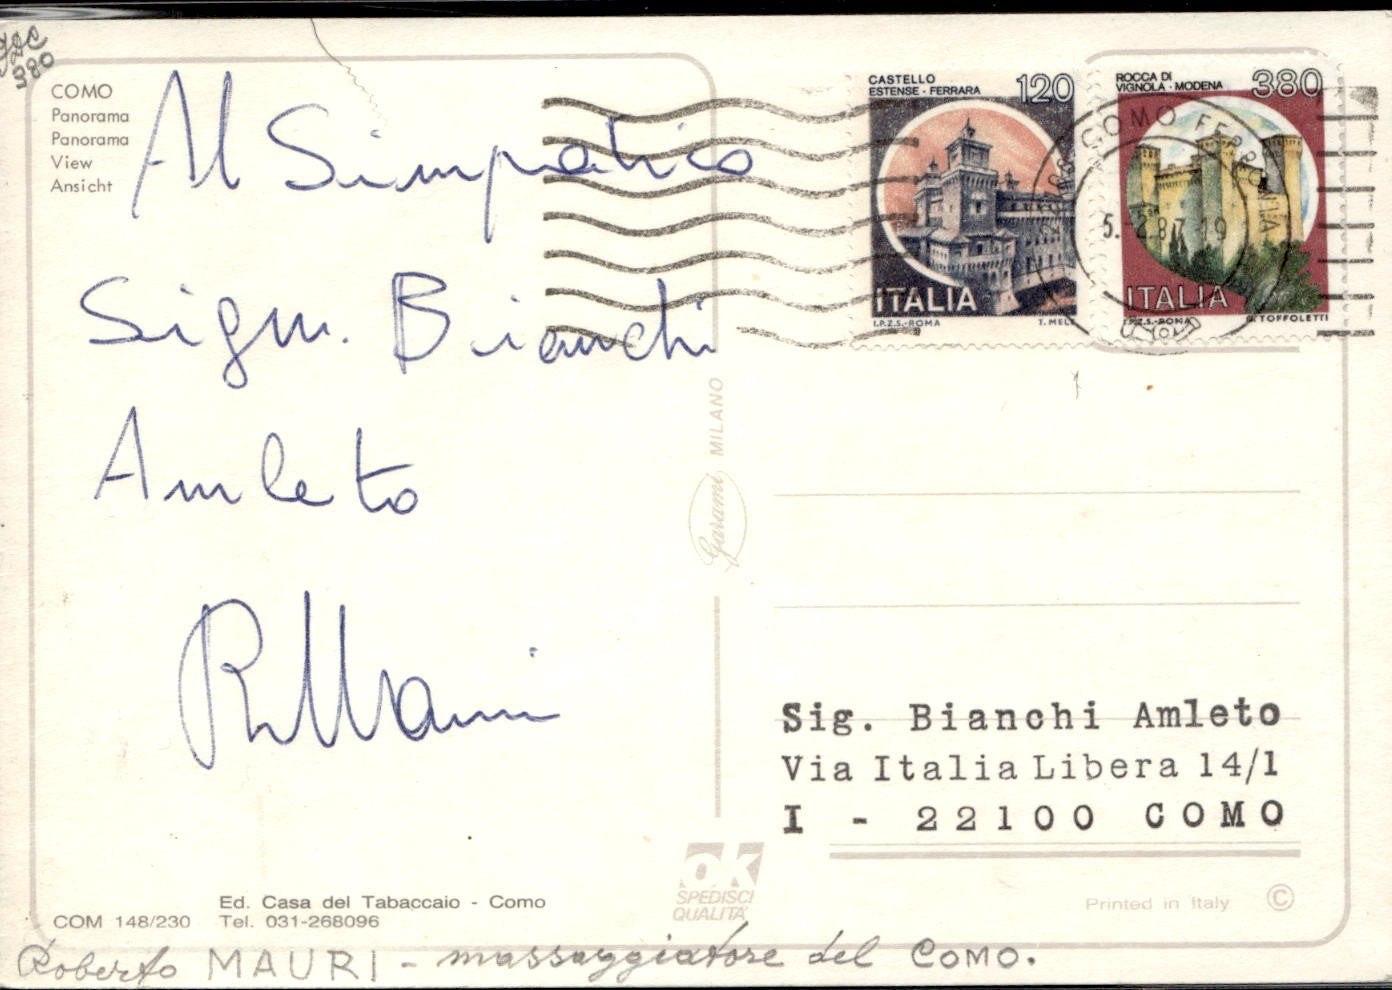 380
COMO
Panorama
Panorama
View
Ansicht
Al Simpatico
Sign. Bianchi
Amleto
R Mauri
CASTELLO
ESTENSE - FERRARA
120
ITALIA
I.P.Z.S.-ROMA
ROCCA DI
VIGNOLA - MODENA
380
ITALIA
I.P.Z.S.-ROMA
TOFFOLETTI
COMO FERROVIA
5. 2 87 19
Garami MILANO
Sig. Bianchi Amleto
Via Italia Libera 14/1
I - 22100 COMO
OK
SPEDISCI
QUALITÀ
Ed. Casa del Tabaccaio - Como
COM 148/230 Tel. 031-268096
Printed in Italy ©
Roberto MAURI - massaggiatore del COMO.